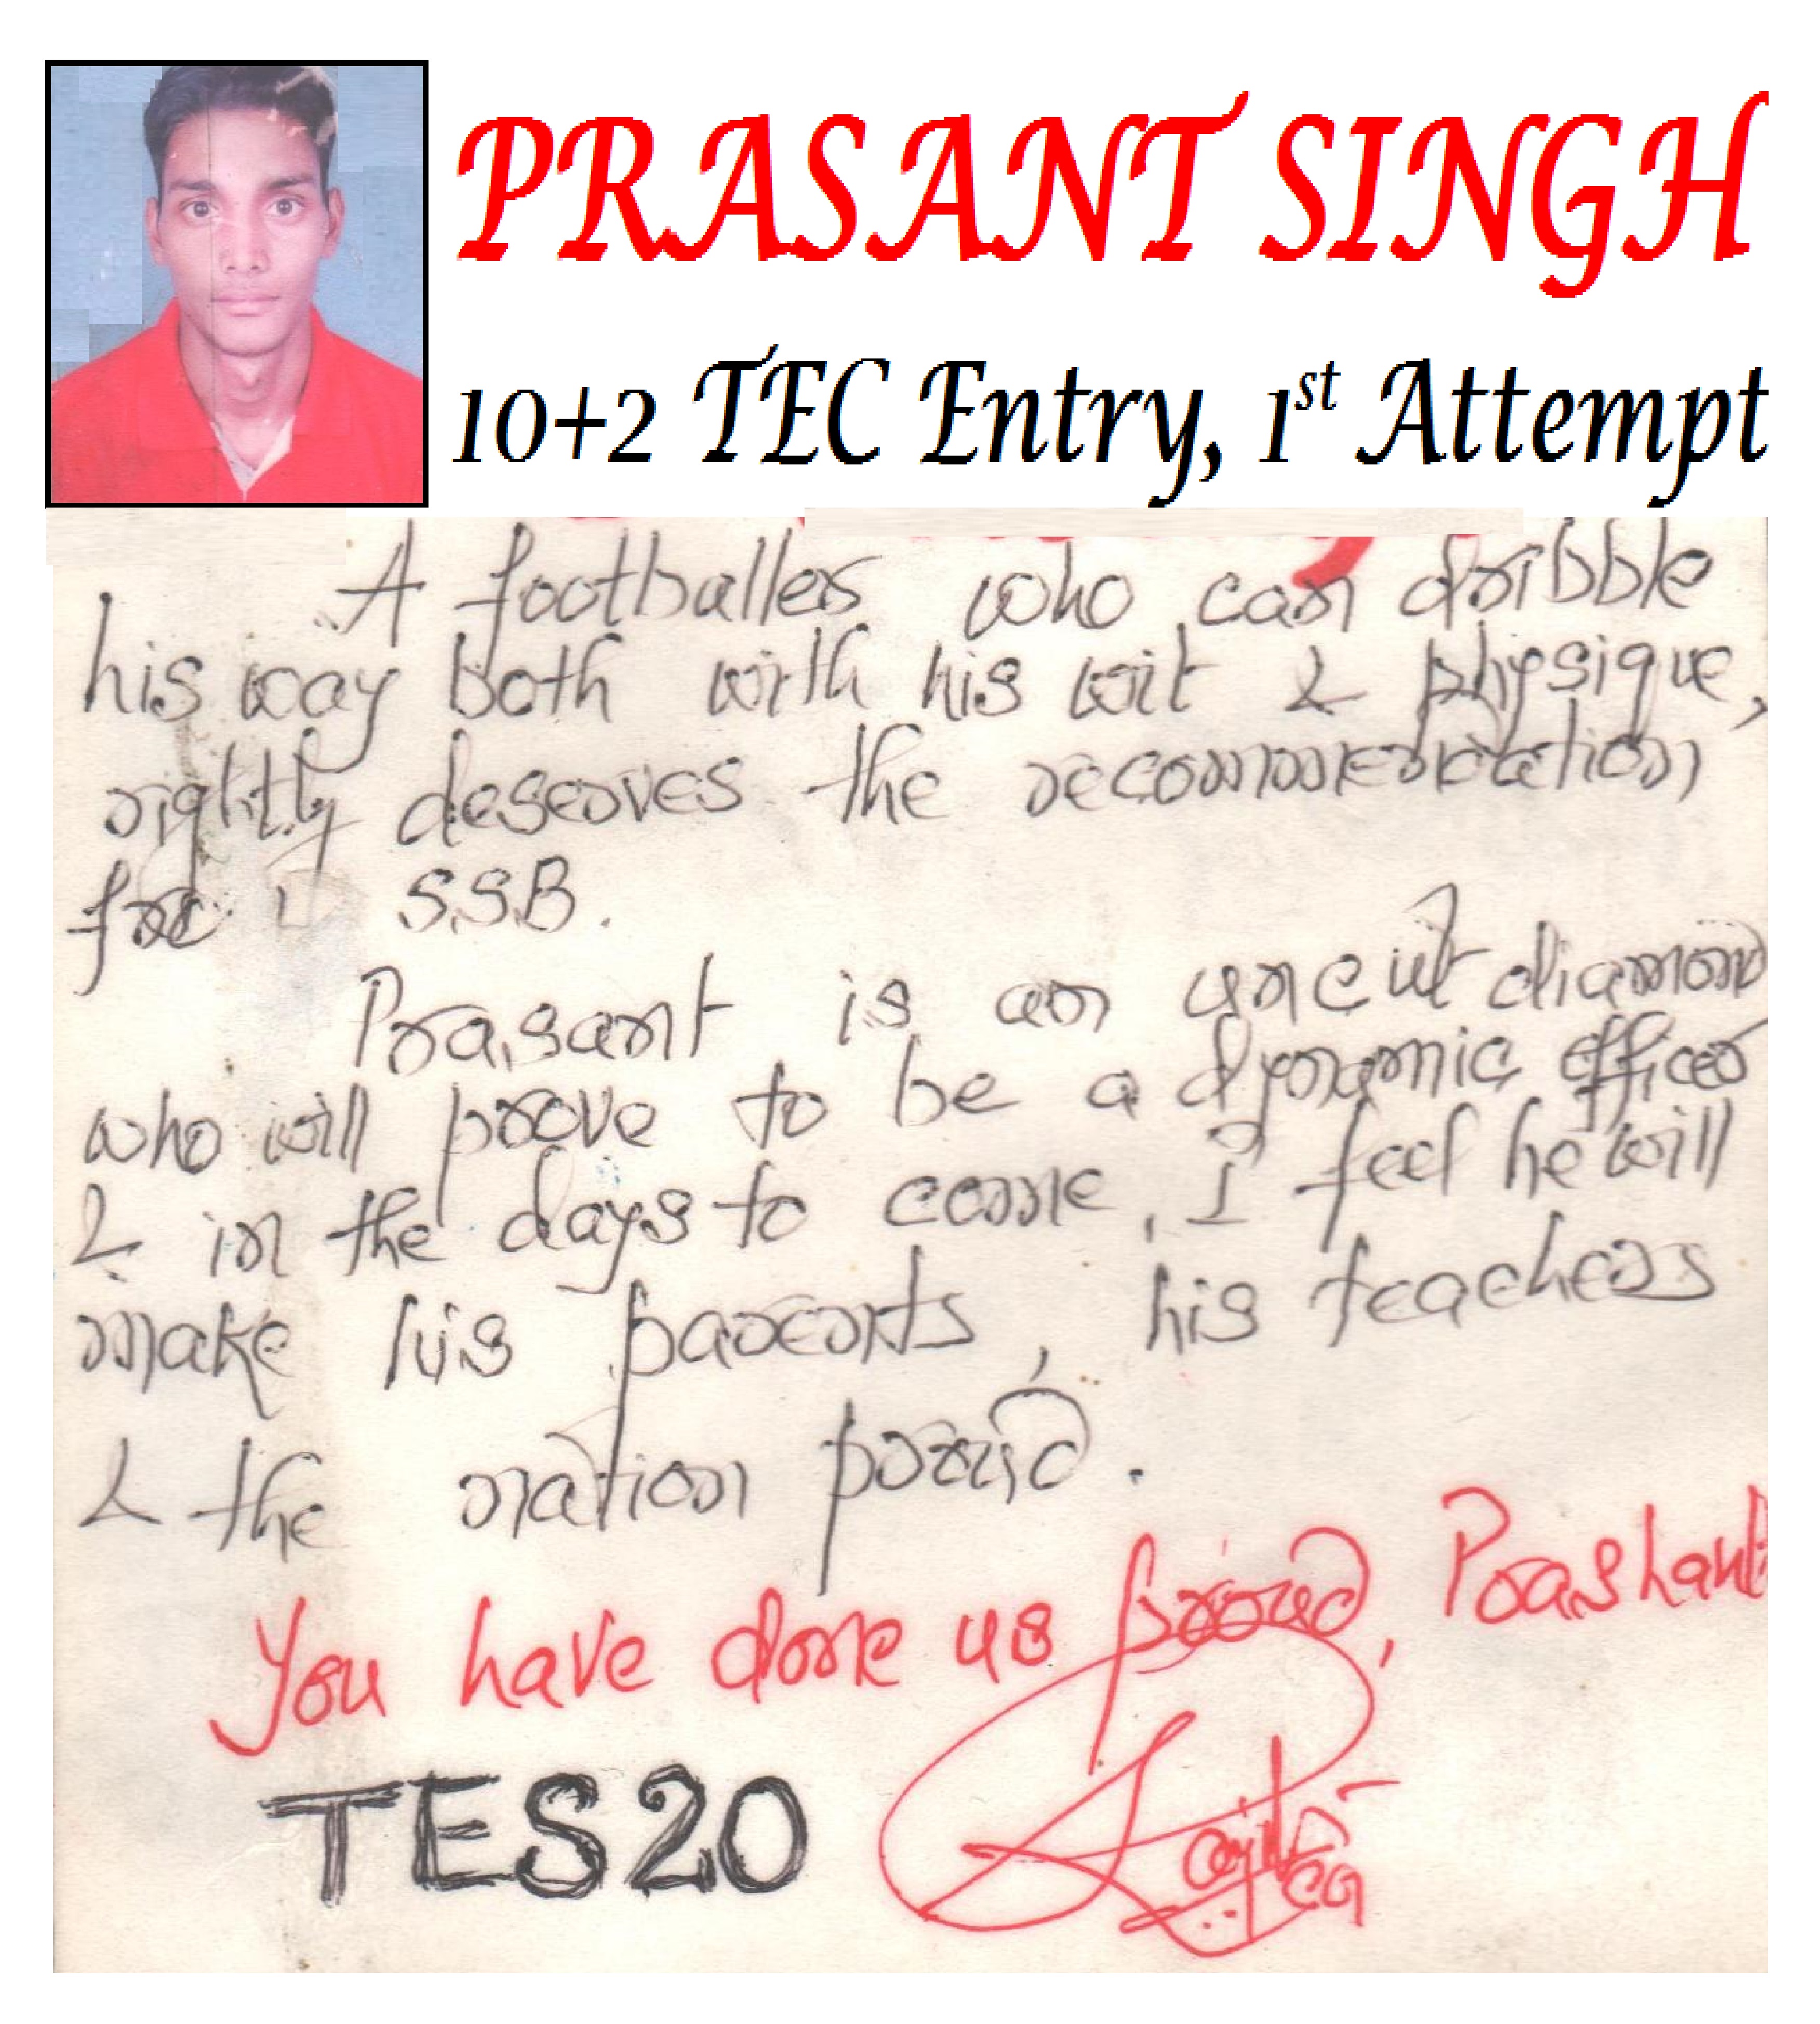 PRASANT SINGH
10+2 TEC Entry, 1st Attempt
A footballer who can dribble
his way both with his wit & physique,
rightly deserves the recommendation
for SSB.
Prasant is an uncut diamond
who will prove to be a dynamic officer
& in the days to come, I feel he will
make his parents, his teachers
& the nation proud.
You have done us proud, Prashant
TES20